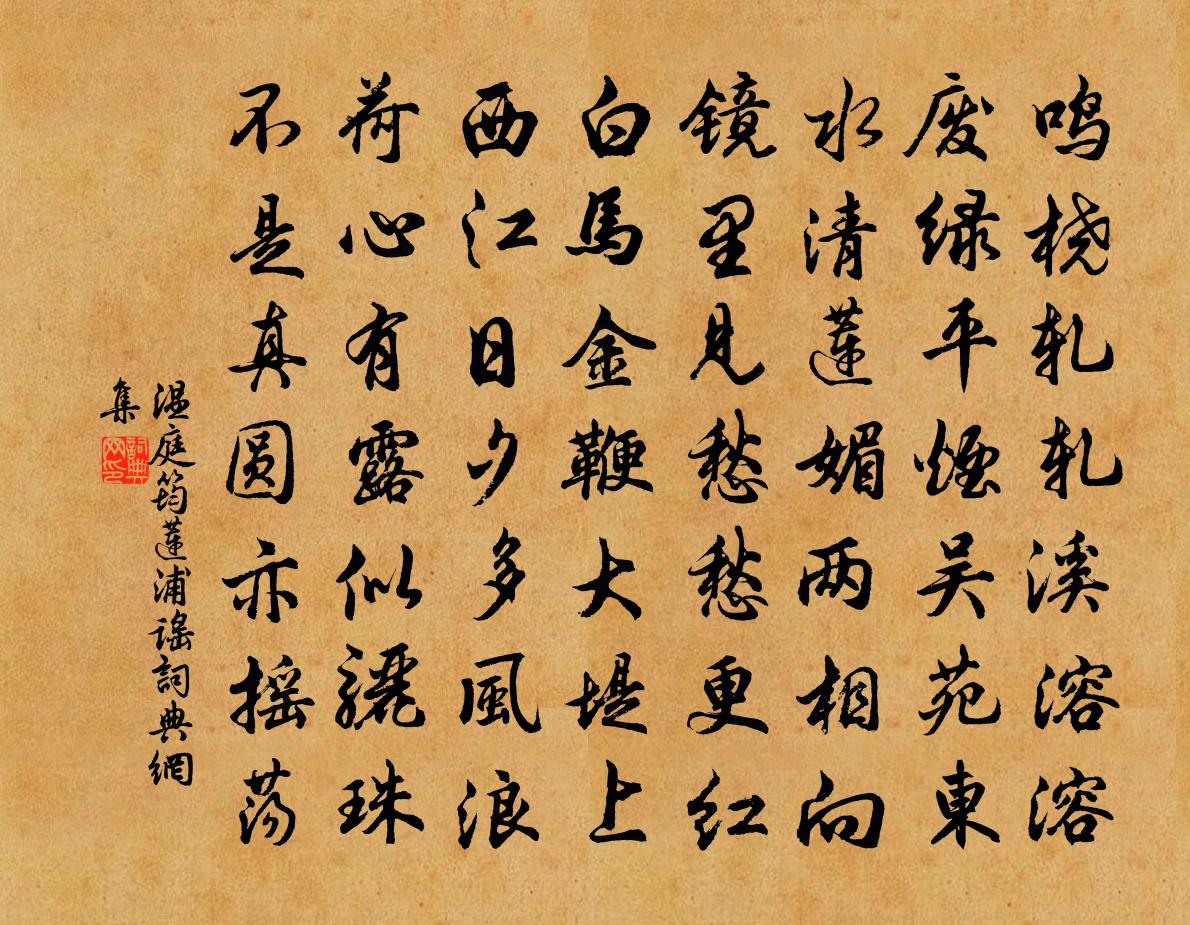 鸣桡轧轧溪溶溶
废绿平煙吴苑東
水清蓮媚两相向
镜里見愁愁更红
白馬金鞭大堤上
西江日夕多風浪
荷心有露似驪珠
不是真圆亦摇荡
温庭筠蓮浦谣詞典網
集